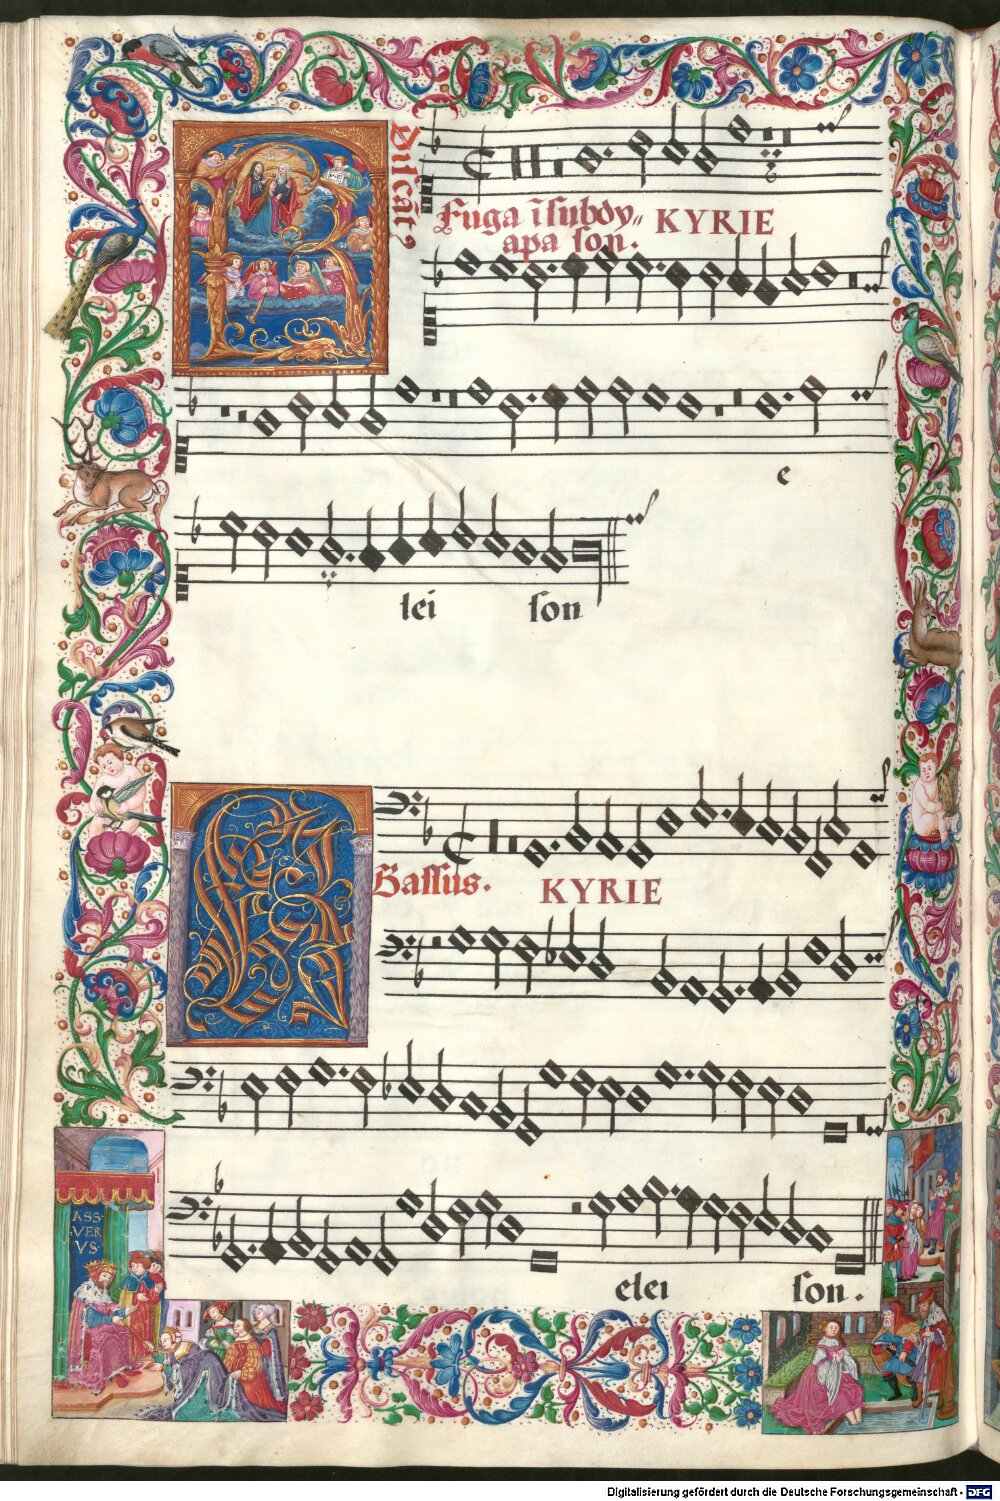 Discāt⁹
Fuga ī subdy„
apa son.
KYRIE
e
lei son
Bassus.
KYRIE
elei son.
ASS
VER
VS
Digitalisierung gefördert durch die Deutsche Forschungsgemeinschaft - DFG